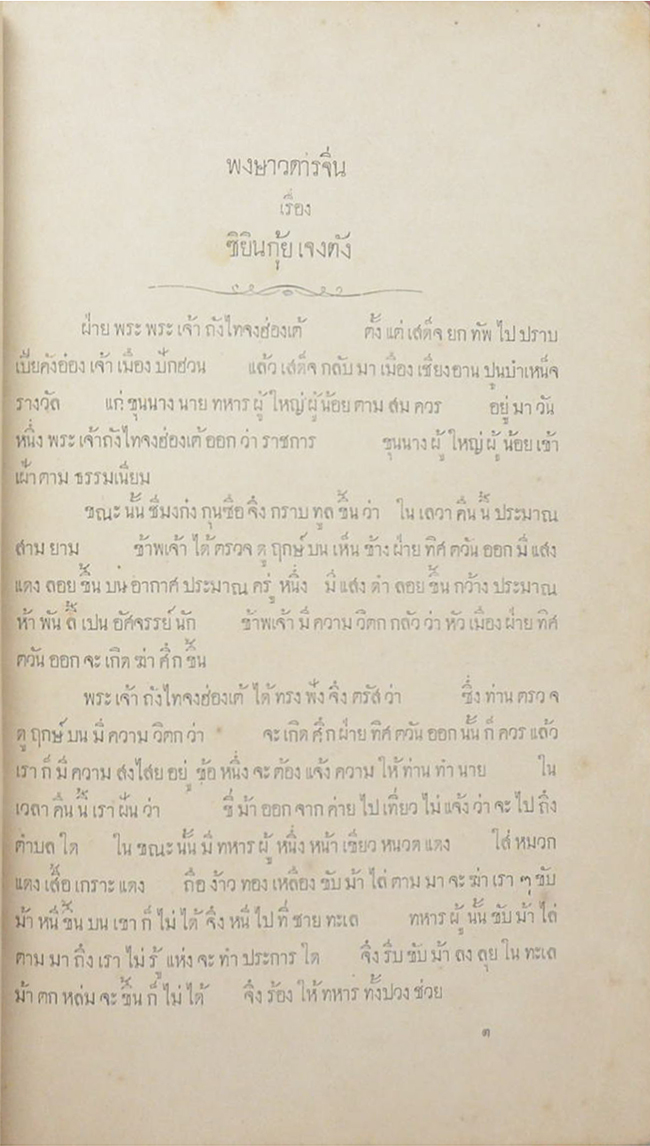 พงษาวดารจิ่น
เรื่อง
ซิยินกุ้ย เจงตัง
ฝ่าย พระ พระ เจ้า ถังไทจงฮ่องเต้ ตั้ง แต่ เสด็จ ยก ทัพ ไป ปราบ
เปียคังอ๋อง เจ้า เมือง ปักฮวน แล้ว เสด็จ กลับ มา เมือง เซียงอาน ปูนบำเหน็จ
รางวัล แก่ ขุนนาง นาย ทหาร ผู้ ใหญ่ ผู้ น้อย ตาม สม ควร อยู่ มา วัน
หนึ่ง พระ เจ้าถังไทจงฮ่องเต้ ออก ว่า ราชการ ขุนนาง ผู้ ใหญ่ ผู้ น้อย เข้า
เฝ้า ตาม ธรรมเนียม
ขณะ นั้น ซืมงก่ง กุนซือ จึ่ง กราบ ทูล ขึ้น ว่า ใน เลวา คืน นี้ ประมาณ
สาม ยาม ข้าพเจ้า ได้ ตรวจ ดู ฤกษ์ บน เห็น ข้าง ฝ่าย ทิศ ตวัน ออก มี แสง
แดง ลอย ขึ้น บน อากาศ ประมาณ ครู่ หนึ่ง มี แสง ดำ ลอย ขึ้น กว้าง ประมาณ
ห้า พัน ลี้ เปน อัศจรรย์ นัก ข้าพเจ้า มี ความ วิตก กลัว ว่า หัว เมือง ฝ่าย ทิศ
ตวัน ออก จะ เกิด ฆ่า ศึก ขึ้น
พระ เจ้า ถังไทจงฮ่องเต้ ได้ ทรง ฟัง จึ่ง ตรัส ว่า ซึ่ง ท่าน ตรวจ
ดู ฤกษ์ บน มี ความ วิตก ว่า จะ เกิด ศึก ฝ่าย ทิศ ตวัน ออก นั้น ก็ ควร แล้ว
เรา ก็ มี ความ สงไสย อยู่ ข้อ หนึ่ง จะ ต้อง แจ้ง ความ ให้ ท่าน ทำ นาย ใน
เวลา คืน นี้ เรา ฝัน ว่า ขี่ ม้า ออก จาก ค่าย ไป เที่ยว ไม่ แจ้ง ว่า จะ ไป ถึง
ตำบล ใด ใน ขณะ นั้น มี ทหาร ผู้ หนึ่ง หน้า เขียว หนวด แดง ใส่ หมวก
แดง เสื้อ เกราะ แดง ถือ ง้าว ทอง เหลือง ขับ ม้า ไล่ ตาม มา จะ ฆ่า เรา ๆ ขับ
ม้า หนี ขึ้น บน เขา ก็ ไม่ ได้ จึ่ง หนี ไป ที่ ชาย ทะเล ทหาร ผู้ นั้น ขับ ม้า ไล่
ตาม มา ถึง เรา ไม่ รู้ แห่ง จะ ทำ ประการ ใด จึ่ง รีบ ขับ ม้า ลง ลุย ใน ทะเล
ม้า ตก หล่ม จะ ขึ้น ก็ ไม่ ได้ จึ่ง ร้อง ให้ ทหาร ทั้งปวง ช่วย
๓